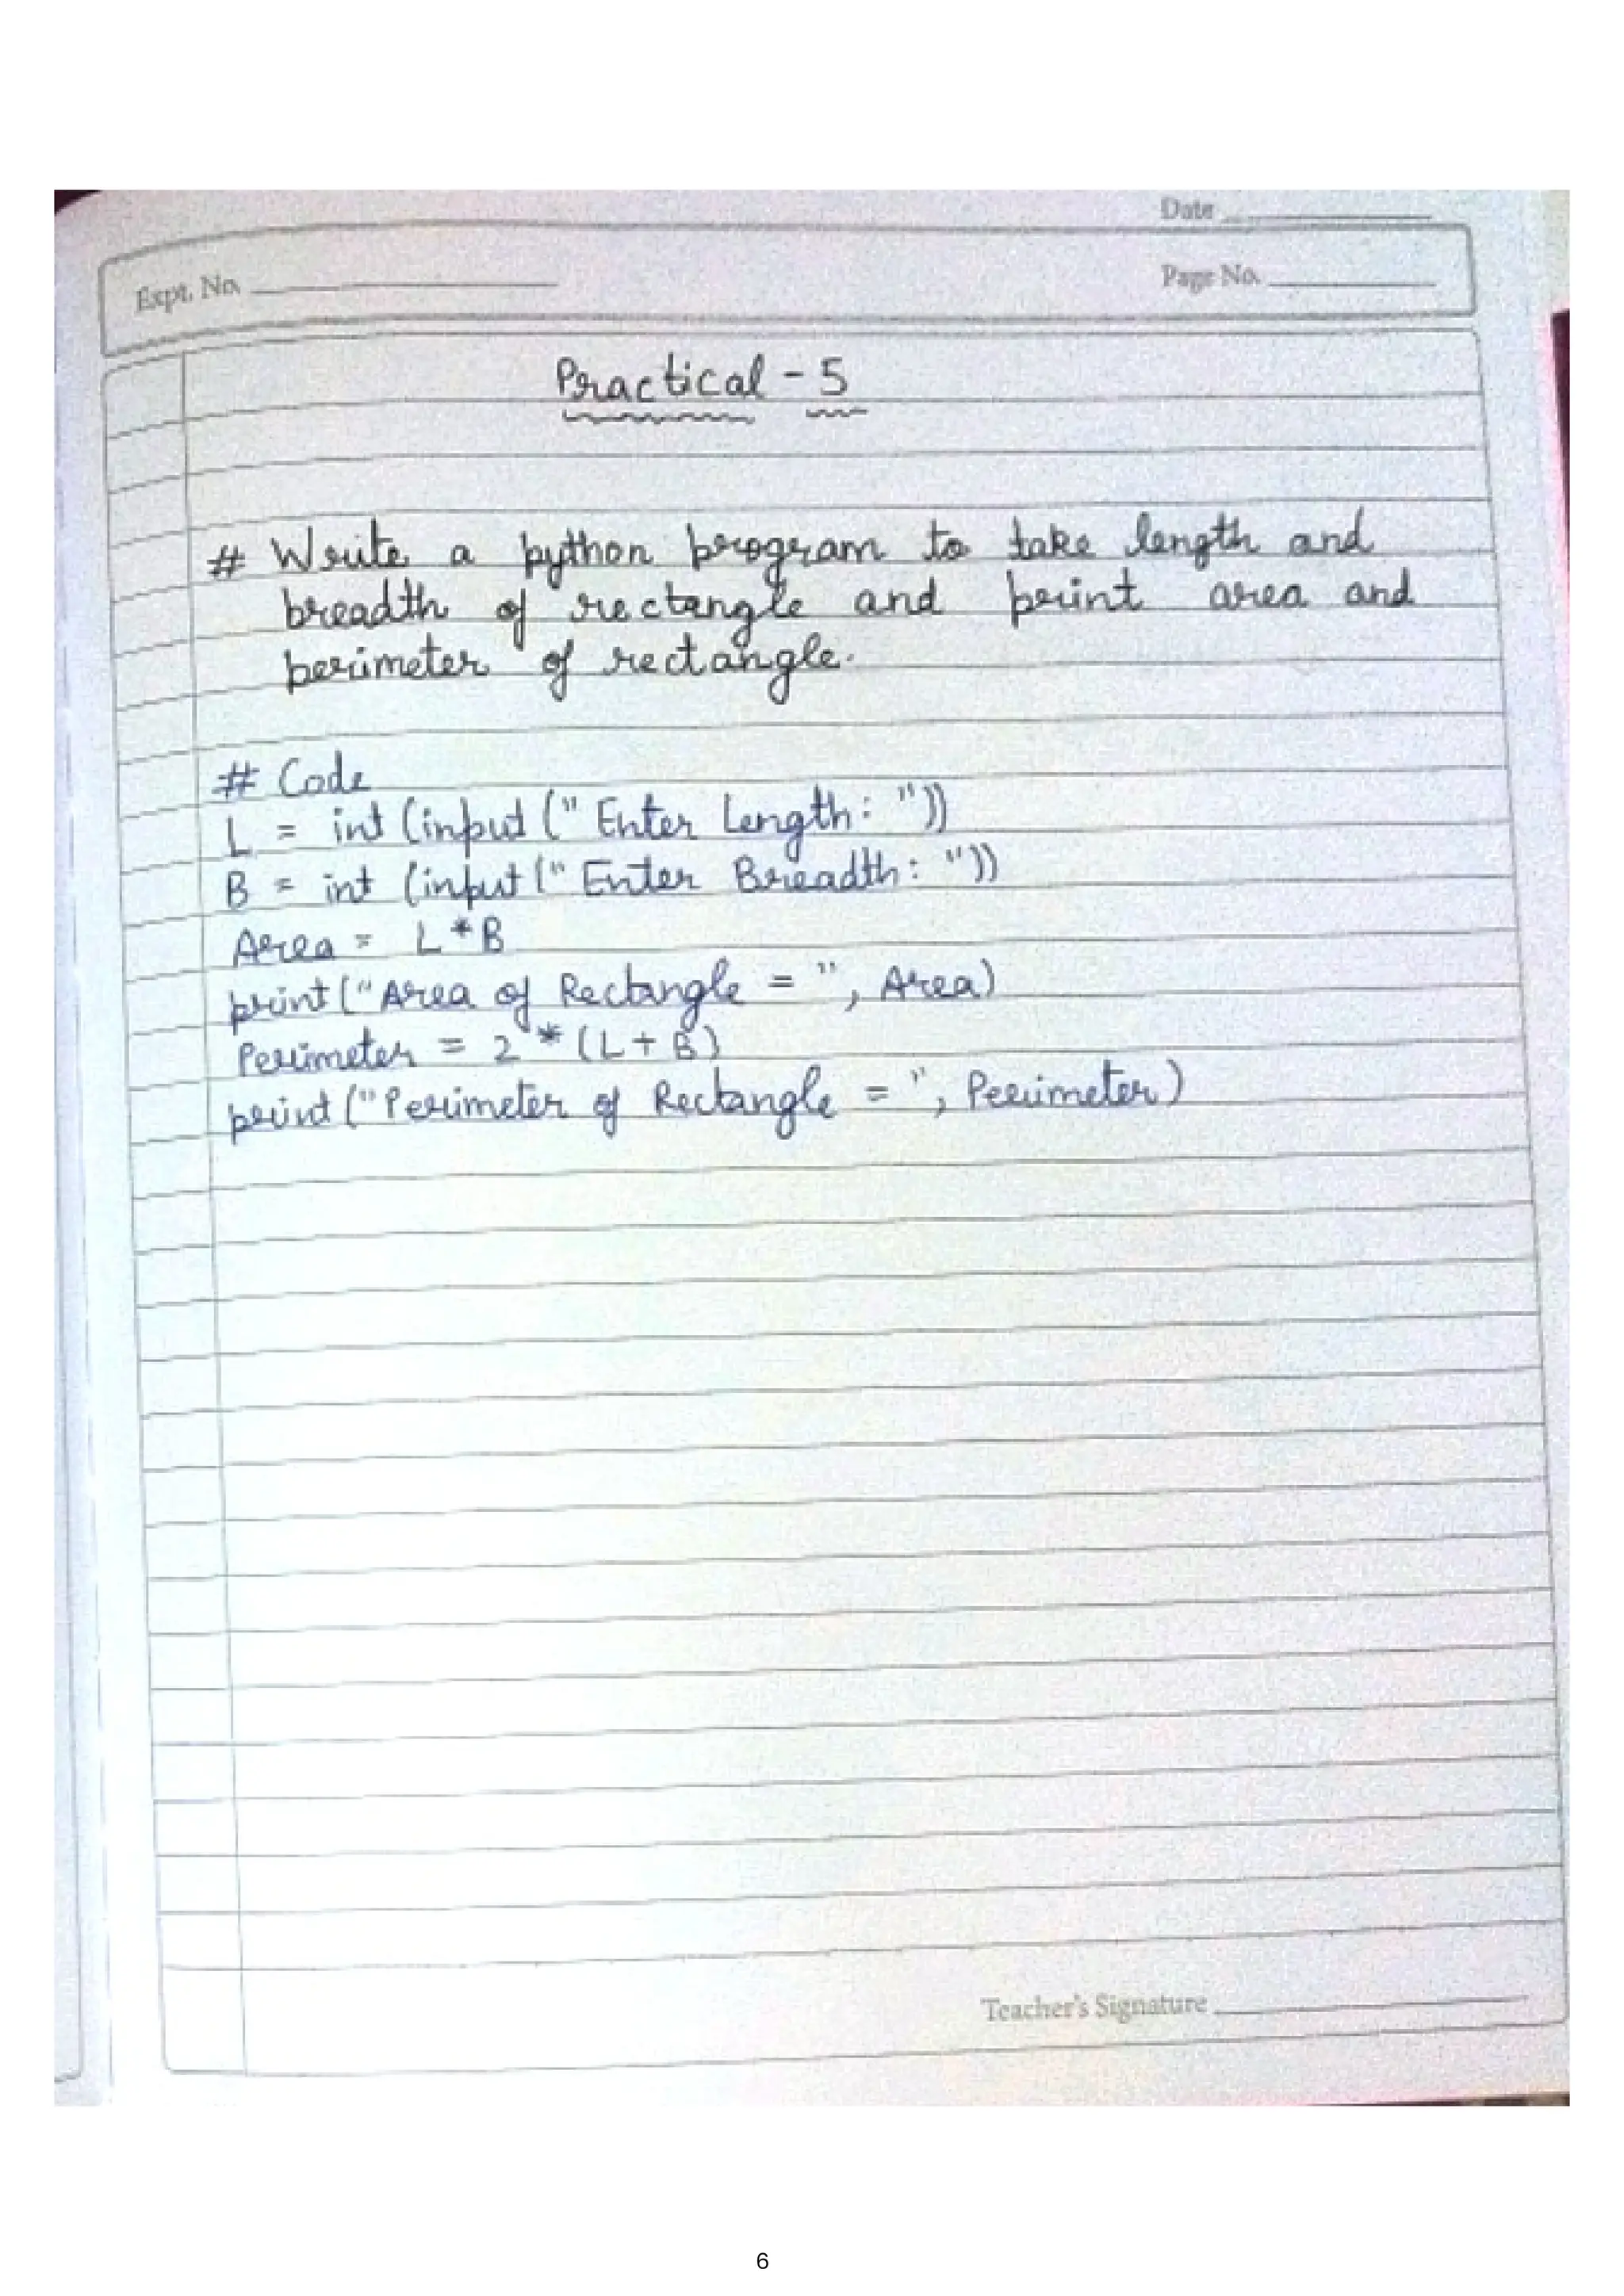 Date
Expt. No.
Page No.
Practical - 5
# Write a python program to take length and
breadth of rectangle and print area and
perimeter of rectangle.
# Code
L = int (input (" Enter Length: "))
B = int (input (" Enter Breadth: "))
Area = L * B
print ("Area of Rectangle = ", Area)
Perimeter = 2 * (L + B)
print ("Perimeter of Rectangle = ", Perimeter)
Teacher's Signature
6